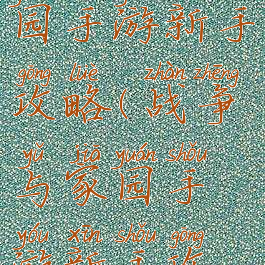 园手游新手
gōng lüè zhàn zhēng
攻略(战争
yǔ jiā yuán shǒu
与家园手
yóu xīn shǒu gōng
游新手攻